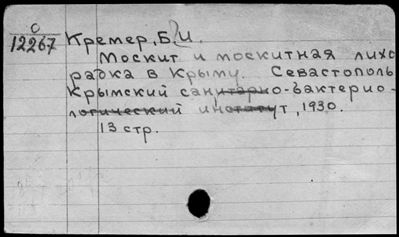 О
12267
Кремер, Б. И.
Москит и москитная лихо
радка в Крыму. Севастополь
Крымский санитарно-бактерио-
логический институт, 1930.
13 стр.